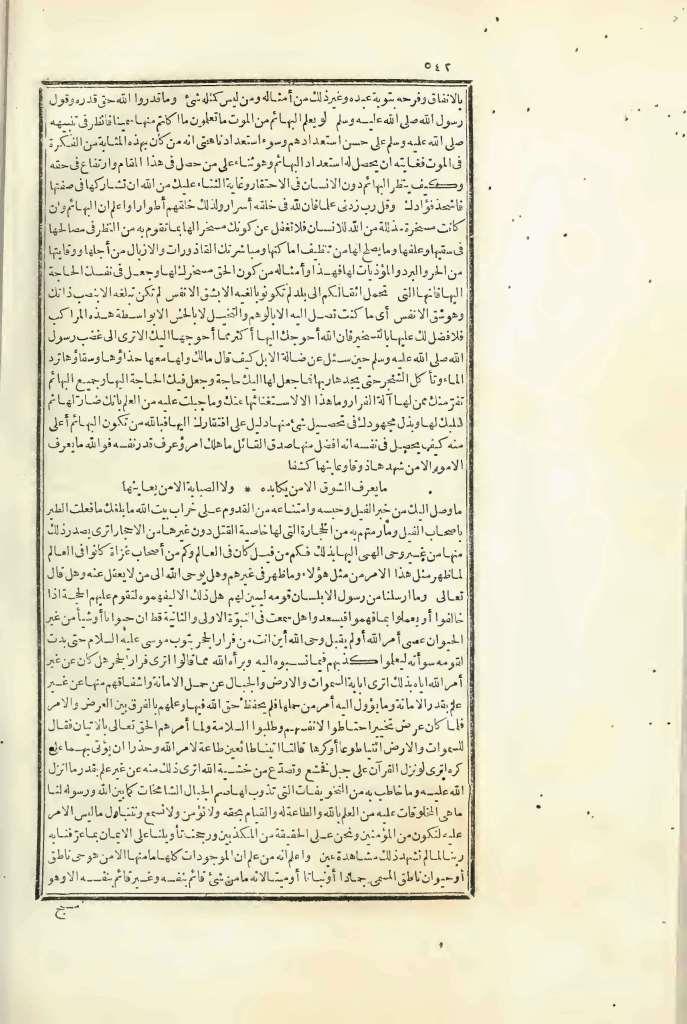 ٥٤٢
بالانفاق وفرحه بتوبة عبده وغير ذلك من أمثاله ومن ليس كمثله شئ وما قدروا الله حق قدره وقول
رسول الله صلى الله عليه وسلم لو يعلم البهائم من الموت ما تعلمون ما أكلتم منها سمينا فانظر فى تنبيهه
صلى الله عليه وسلم على حسن استعدادهم وسوء استعدادنا هتى انه من كان بهذه المثابة من الفكرة
فى الموت فغايته ان يحصل له استعداد البهائم وهو ثناء على من حصل فى هذا المقام وارتفاع فى حقه
وكيف ينظر البهائم دون الانسان فى الاحتقار وغاية الثناء عليك من الله ان تشاركها فى صفتها
فاشحذ فؤادك وقل رب زدنى علما فان لله فى خلقه أسرار ولذلك خلقهم أطوارا واعلم ان البهائم وان
كانت مسخرة مذللة من الله للانسان فلا تغفل عن كونك مسخر الها بما تقوم به من النظر فى مصالحها
فى سقيها وعلفها وما يصلح لها من تنظيف اماكنها ومباشرتك القاذورات والازبال من أجلها ووقايتها
من الحر والبرد والمؤذيات لها فهذا وأمثاله من كون الحق مسخرك لها وجعل فى نفسك الحاجة
اليها فانها التى تحمل اثقالكم الى بلد لم تكونوا بالغيه الا بشق الانفس لم تكن تبلغه الا بنصب ذاتك
وهو شق الانفس أى ما كنت تصل اليه الا بالوهم والتخيل لا بالحس الا بواسطة هذه المراكب
فلا فضل لك عليها بالتسخير فان الله أحوجك اليها أكثر مما أحوجها اليك الا ترى الى غضب رسول
الله صلى الله عليه وسلم حين سئل عن ضالة الابل كيف قال مالك ولها معها حذاؤها وسقاؤها ترد
الماء وتأكل الشجر حتى يجدها ربها فما جعل لها اليك حاجة وجعل فيك الحاجة اليها وجميع البهائم
تفر منك ممن لها آلة الفرار وما هذا الا لاستغنائها عنك وما جبلت عليه من العلم بانك ضار لها ثم
طلبك لها وبذل مجهودك فى تحصيل شئ منها دليل على افتقارك اليها فبالله من تكون البهائم أغنى
منه كيف يحصل فى نفسه انه افضل منها صدق القائل ما هلك امرؤ عرف قدر نفسه فوالله ما يعرف
الامور الا من شهدها ذوقا وعاينها كشفا
ما يعرف الشوق الا من يكابده * ولا الصبابة الا من يعانيها
ما وصل اليك من خبر الفيل وحبسه وامتناعه من القدوم على خراب بيت الله ما بلغك ما فعلت الطير
باصحاب الفيل وما رمتهم به من الحجارة التى لها خاصية القتل دون غيرها من الاحجار اترى يصدر ذلك
منها من غير وحى الهى اليها بذلك فكم من فيل كان فى العالم وكم من أصحاب غزاة كانوا فى العالم
لما ظهر مثل هذا الامر من مثل هؤلاء وما ظهر فى غيرهم وهل يوحى الله الى من لا يعقل عنه وهل قال
تعالى وما ارسلنا من رسول الا بلسان قومه ليبين لهم هل ذلك الا ليفهموه لتقوم عليهم الحجة اذا
خالفوا أو يعملوا بما فهموا فيسعدوا هل سمعت فى النبوة الاولى والثانية قط ان حيوانا أو شيأ من غير
الحيوان عصى أمر الله أو لم يقبل وحى الله أين انت من فرار الحجر بثوب موسى عليه السلام حتى بدت
لقومه سوأته ليعلموا كذبهم فيما نسبوه اليه وبرأه الله مما قالوا اترى فرار الحجر هل كان عن غير
أمر الله اياه بذلك اترى اباية السموات والارض والجبال عن حمل الامانة واشفاقهم منها عن غير
علم بقدر الامانة وما يؤول اليه أمر من حملها فلم يحفظ حق الله فيها وعلمهم بالفرق بين العرض والامر
فلما كان عرض تخيير احتاطوا لانفسهم وطلبوا السلامة ولما أمرهم الحق تعالى بالاتيان فقال
للسموات والارض ائتيا طوعا أو كرها قالتا اتينا طائعين طاعة لامر الله وحذرا ان يؤتى بهما على
كره اترى لو نزل القرآن على جبل فخشع وتصدع من خشية الله اترى ذلك منه عن غير علم بقدر ما انزل
الله عليه وما خاطب به من التخويفات التى تذوب لها صم الجبال الشامخات كم أبين الله ورسوله لنا
ما هى المخلوقات عليه من العلم بالله والطاعة له والقيام بحقه ولا نؤمن ولا نسمع ونتأول ما ليس الامر
عليه لنكون من المؤمنين ونحن على الحقيقة من المكذبين ورجحنا تأويلنا على الايمان بما عرفنا به
ربنا لما لم نشهد ذلك مشاهدة عين واعلم انه من علم ان الموجودات كلها ما منها الا من هو حى ناطق
أو حيوان ناطق المسمى جمادا أو نباتا أو ميتا لانه ما من شئ قائم بنفسه وغير قائم بنفسه الا وهو
مسبح